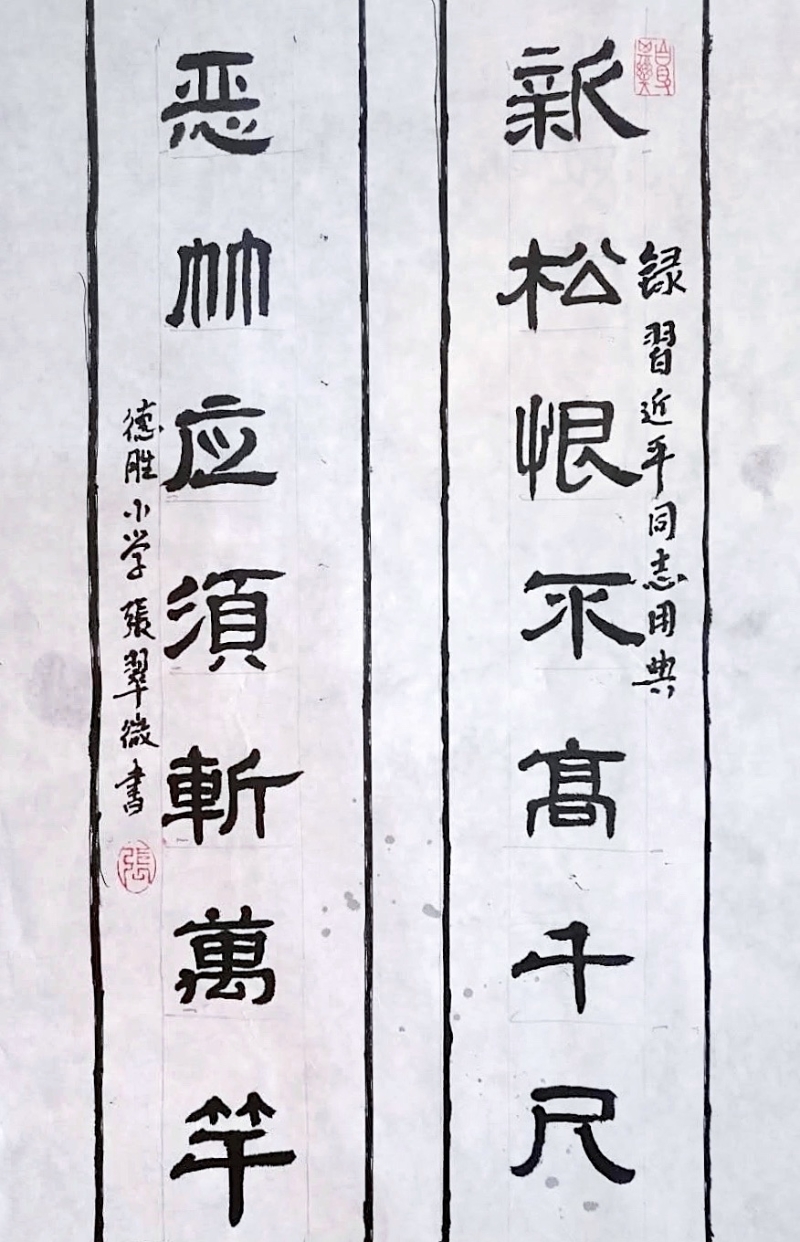 新松恨不高千尺
録習近平同志用典
恶竹应須斬萬竿
德胜小学張翠微書
張